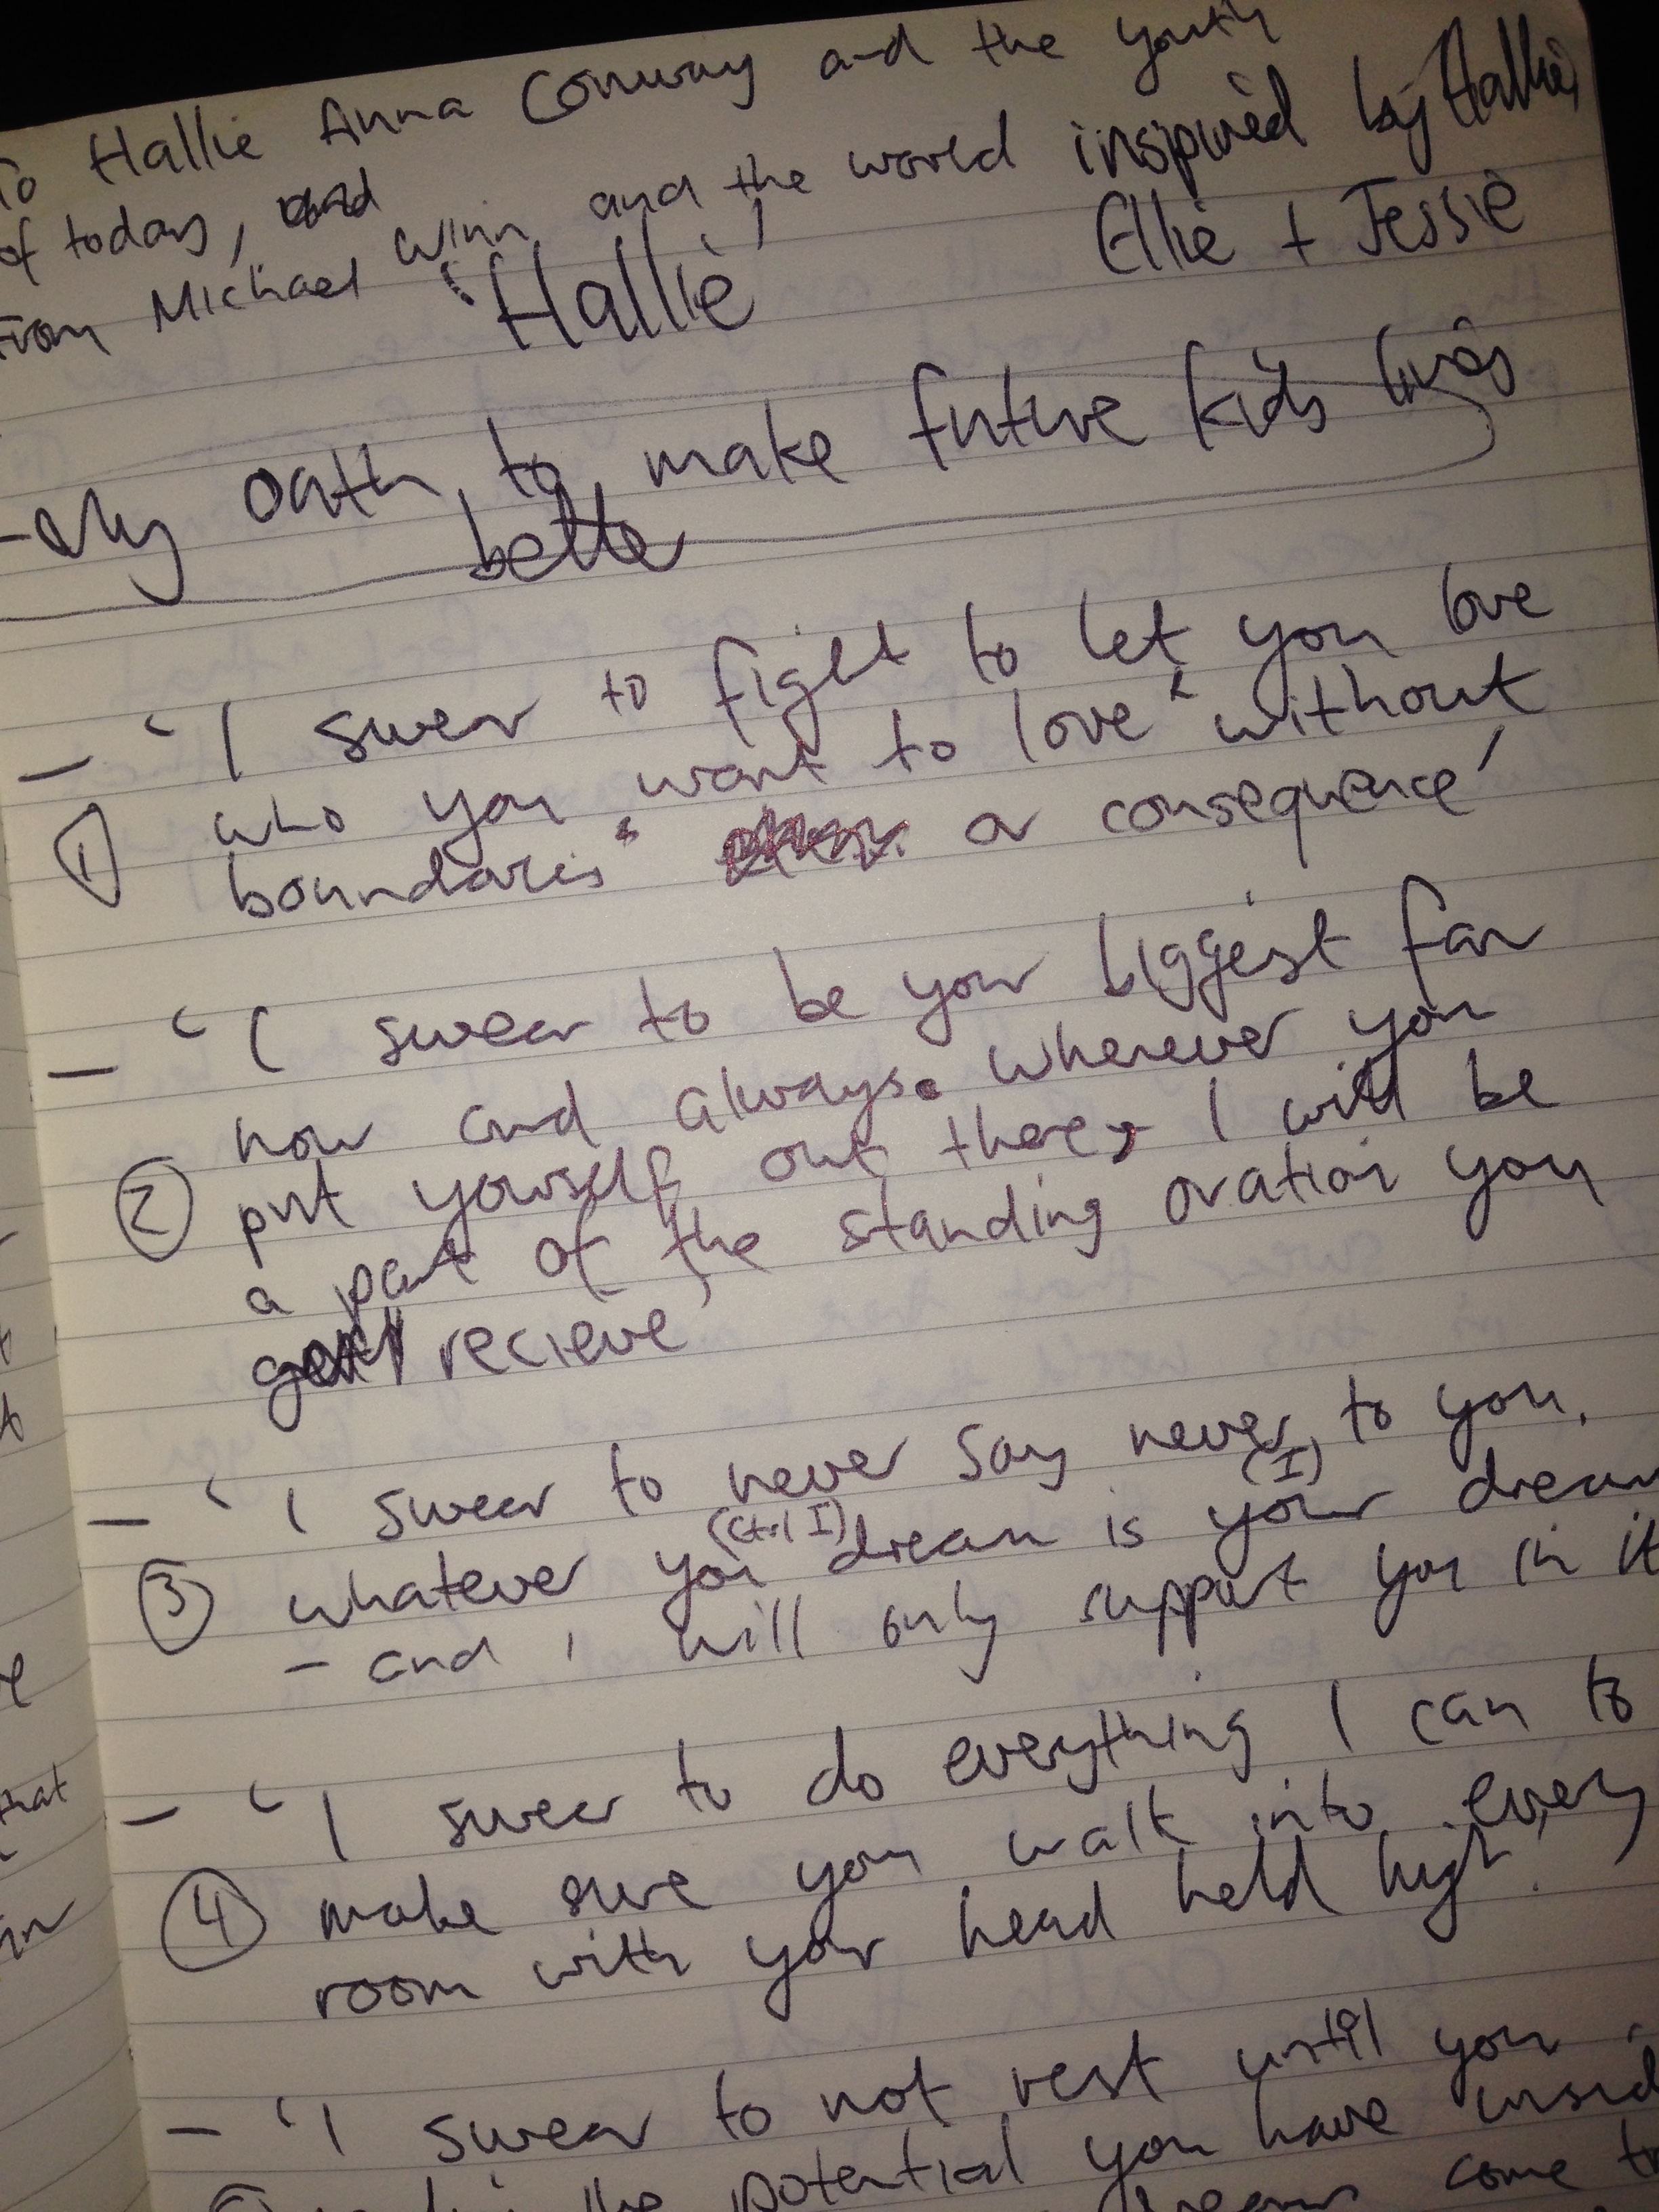 To Hallie Anna Conway and the youth
of today, and the world inspired by Hallie,
From Michael Winn and Ellie + Jessie
'Hallie'
- My oath to make future kids lives
better
- 'I swear to fight to let you love
who you want to love without
① boundaries or consequence'
- 'I swear to be your biggest fan
now and always. Wherever you
② put yourself out there, I will be
a part of the standing ovation you
recieve'
- 'I swear to never say never to you.
(Ctrl I) (I)
③ whatever you dream is your dream
- and I will only support you in it
- 'I swear to do everything I can to
④ make sure you walk into every
room with your head held high'
- 'I swear to not rest until you
the potential you have insid
come
that